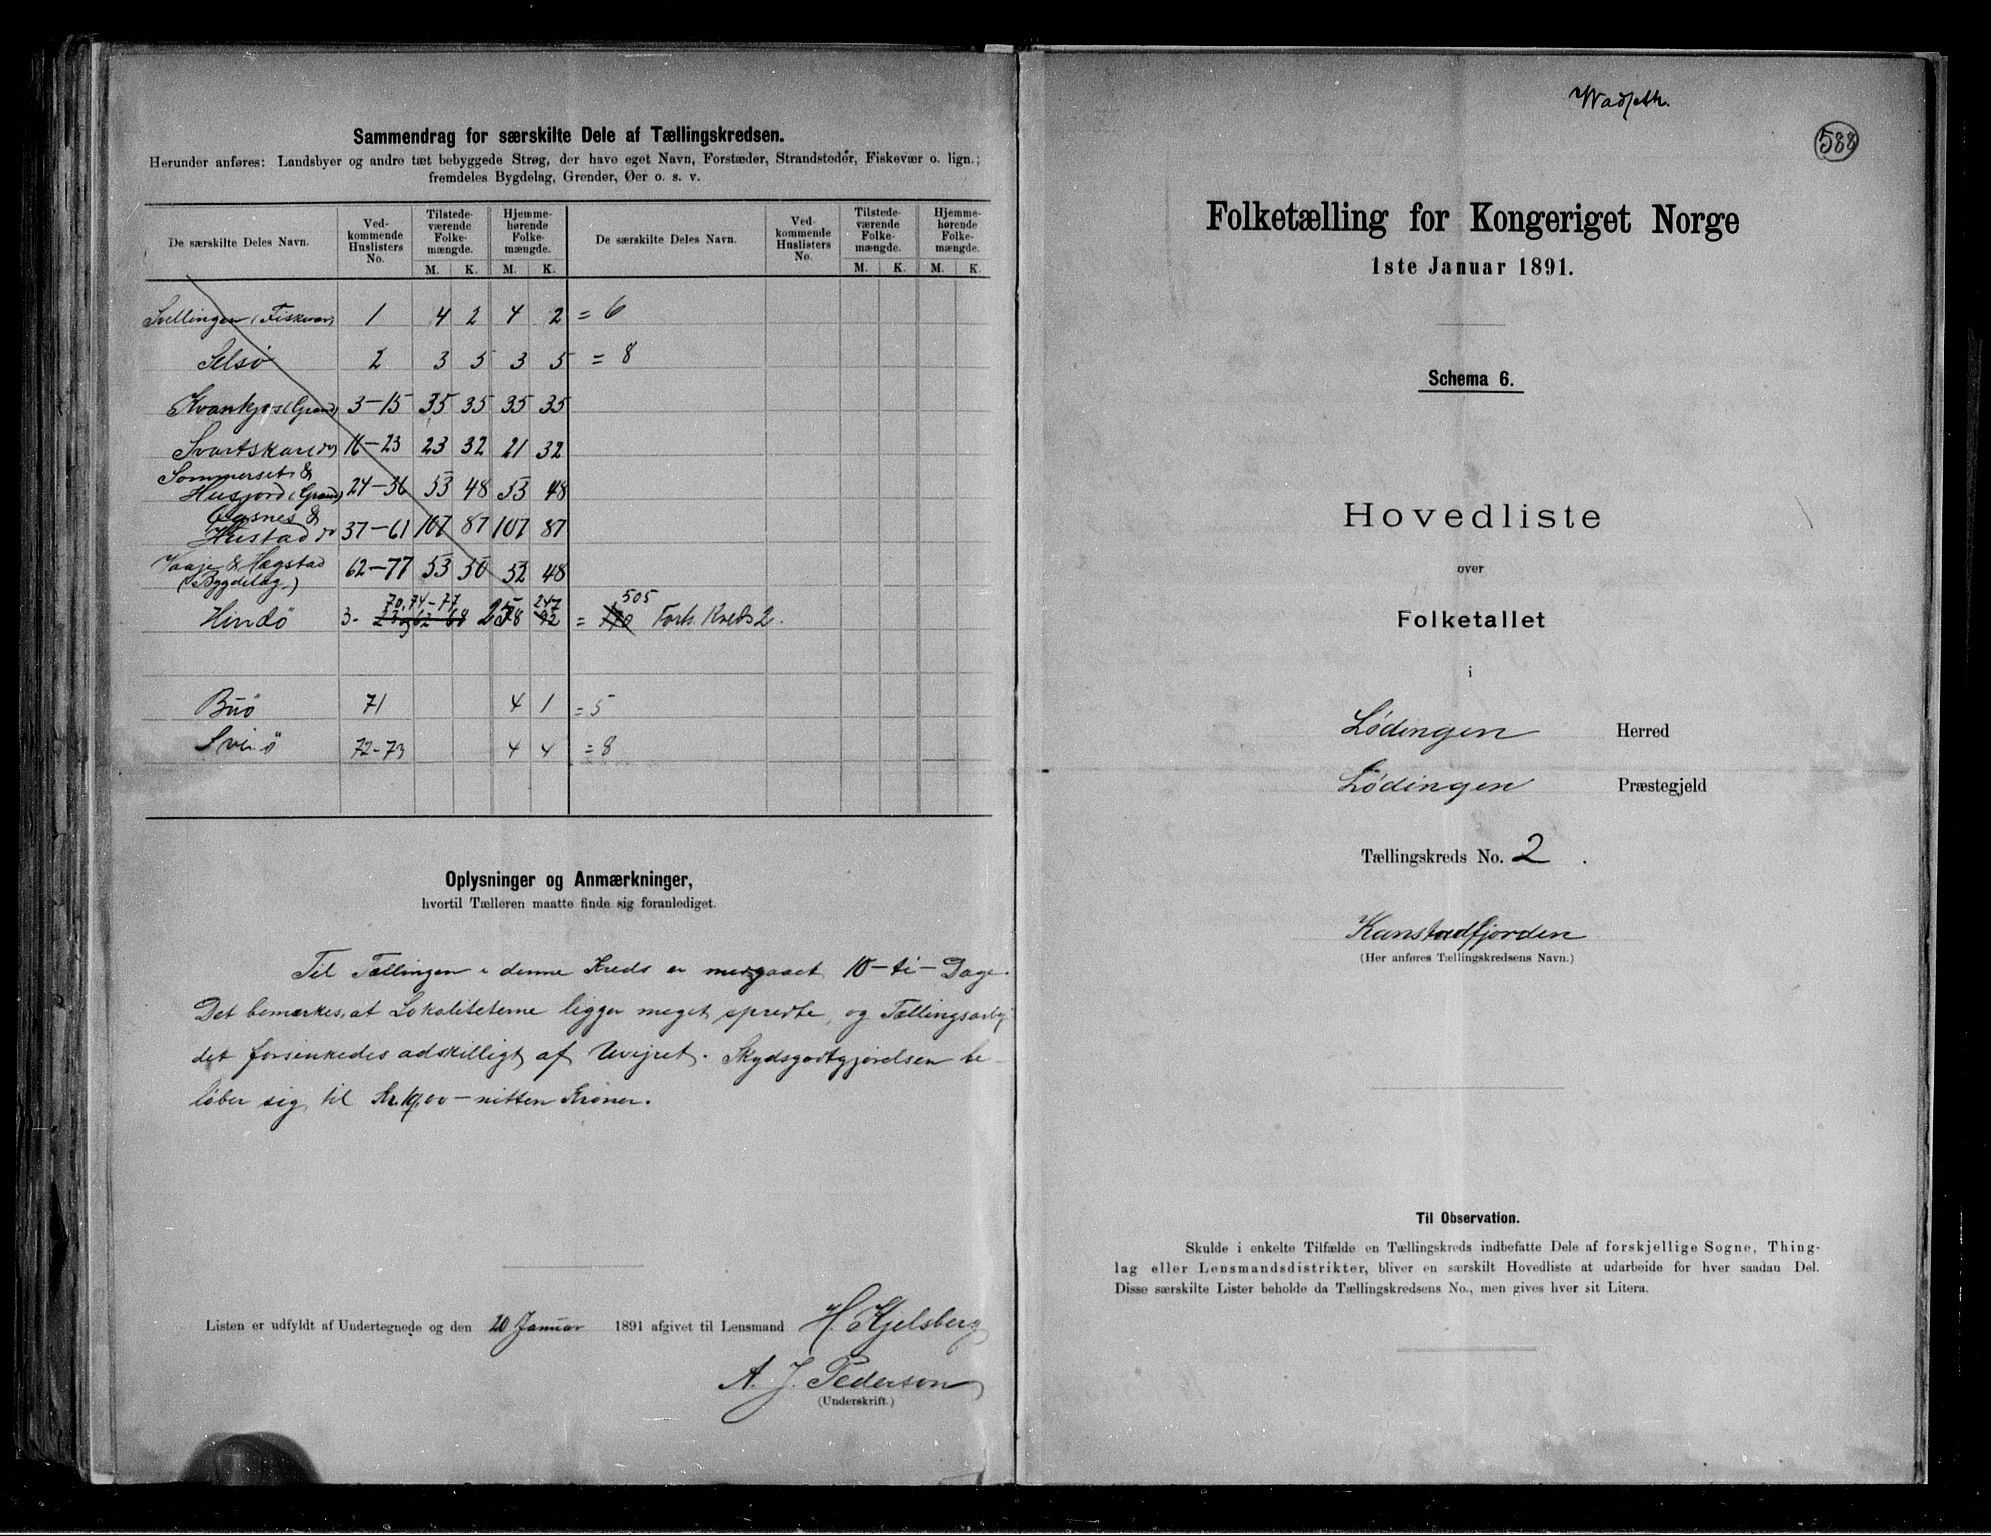 Sammendrag for særskilte Dele af Tællingskredsen.
Herunder anføres: Landsbyer og andre tæt bebyggede Strøg, der have eget Navn, Forstæder, Strandsteder, Fiskevær o. lign.;
fremdeles Bygdelag, Grender, Øer o. s. v.
De særskilte Deles Navn. Ved-kommende Huslisters No. Tilstede-værende Folke-mængde. M. K. Hjemme-hørende Folke-mængde. M. K. De særskilte Deles Navn. Ved-kommende Huslisters No. Tilstede-værende Folke-mængde. M. K. Hjemme-hørende Folke-mængde. M. K.
Svellingen (Fiskevær) 1 4 2 4 2 = 6
Selsø 2 3 5 3 5 = 8
Kvankjos (Grend) 3-15 35 35 35 35
Svartskard 16-23 23 32 21 32
Sommerset &
Husjord (Grend) 24-36 53 48 53 48
&
Hustad do 37-61 107 87 107 87
Vaaje & Hægstad
(Bygdelag) 62-77 53 50 52 48
70, 74-77 247 505
Hindø 3- 258 = Forts. Kreds 2.
Buø 71 4 1 = 5
Svinø 72-73 4 4 = 8
Oplysninger og Anmærkninger,
hvortil Tælleren maatte finde sig foranlediget.
Til Tællingen i denne Kreds er medgaaet 10-ti-Dage.
Det bemærkes, at Lokaliteterne ligger meget spredte, og Tællingsarbej
det forsinkedes adskilligt af Uveiret. Skydsgodtgjørelsen be-
løber sig til Kr. 19,00 - nitten Kroner.
Listen er udfyldt af Undertegnede og den 20 Januar 1891 afgivet til Lensmand H. Kjelsberg
A. J. Pederson
(Underskrift.)
588
Folketælling for Kongeriget Norge
1ste Januar 1891.
Schema 6.
Hovedliste
over
Folketallet
i
Lødingen Herred
Lødingen Præstegjeld
Tællingskreds No. 2.
Kanstadfjorden
(Her anføres Tællingskredsens Navn.)
Til Observation.
Skulde i enkelte Tilfælde en Tællingskreds indbefatte Dele af forskjellige Sogne, Thing-
lag eller Lensmandsdistrikter, bliver en særskilt Hovedliste at udarbeide for hver saadan Del.
Disse særskilte Lister beholde da Tællingskredsens No., men gives hver sit Litera.